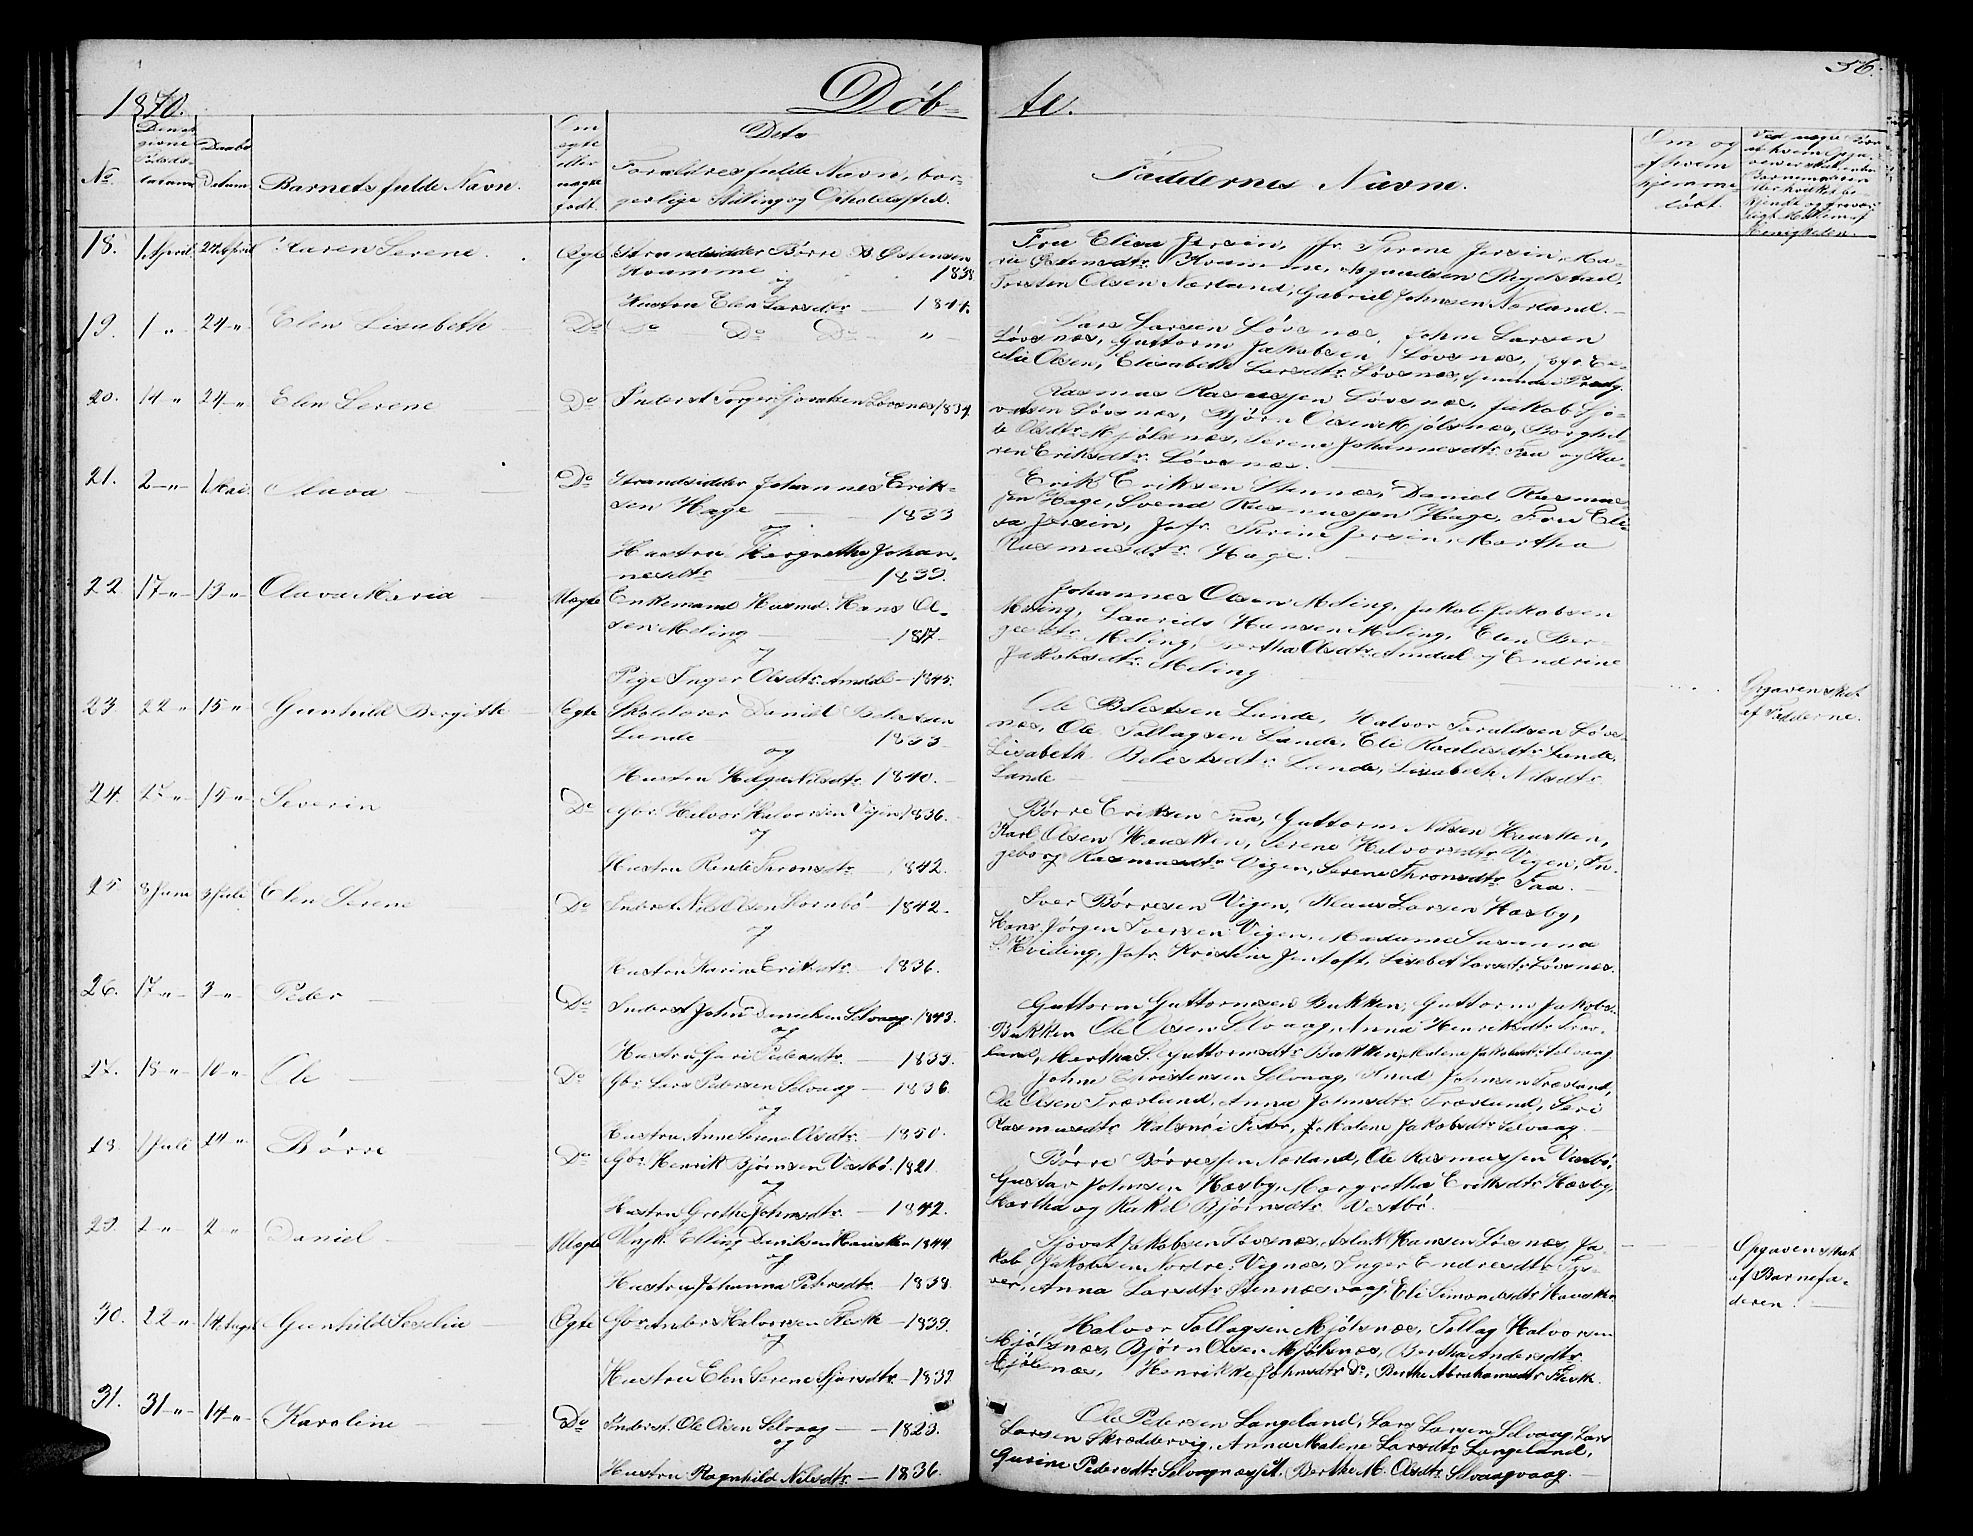 1870.
Døb-
te.
56.
No.
Daabs
Datum
Barnets fulde Navn.
Om
egte
eller
uægte
født.
Dets
Forældres fulde Navn, bor-
gerlige Stilling og Opholdssted.
Faddernes Navne.
Om og
af hvem
hjemme-
døbt.
18. 1 April 24 April Karen Serene Ægte Strandsidder Børre B. Østensen
Kvamme 1838
og
Hustru Elen Larsdtr 1844.
Fru Elisa Jersin, Jfr. Thrine Jersin, Ma-
Kvamme,
Torsten Olsen Nærland, Gabriel Johnsen Nærland.
19. 1 " 24 " Elen Lisabeth Do Do Do Do "
Lars Larsen Løvsnæs, John Larsen
Løvsnæs, Guttorm Jakobsen Løvsnæs,
Olsen, Elisabeth Larsdtr Løvsnæs,
20. 14 " 24 " Elen Serene Do Inderst Torger Løvsnæs 1834
Rasmus Rasmussen Løvsnæs, Jakob Sjø-
vatsen Løvsnæs, Bjørn Olsen Mjølsnæs, Borghil-
de Olsdtr Mjølsnæs, Serene Johannesdtr Faa og Ka-
ren Eriksdtr Løvsnæs.
21. 2 " 1 Mai Olava Do Strandsidder Johannes Erik-
sen Hage 1833
og
Hustru Margrethe Johan-
nesdtr 1839.
Erik Eriksen Stennæs, Daniel Rasmus-
sen Hage, Svend Rasmussen Hage, Fru Eli-
sa Jersin, Jfr. Thrine Jersin, Martha
Rasmusdtr Hage.
22 17 " 13 " Olava Maria Uægte Enkemand Husmd. Hans Ol-
sen Meling 1817
og
Pige Inger Olsdtr. Amdal 1845.
Johannes Olsen Meling, Jakob Jakobsen
Meling, Laurids Hansen Meling, Elen Ber-
Meling, Bertha Olsdtr Amdal og Endrine
Jakobsdtr Meling
Opgaven sket
af Fadderne.
23 22 " 15 " Gunhild Bergitte Ægte Skolelærer Daniel Belestsen
Lunde 1833
og
Hustru Helga Nilsdtr 1840.
Ole Belestsen Lunde, Halvor Toraldsen Løvs-
næs, Ole Tollagsen Lunde, Eli Lunde,
Lisabeth Belestsdtr Lunde, Lisabeth Nilsdtr
Lunde
24. 27 " 15 " Severin Do Gbr. Halvor Halvorsen Vigen 1836.
og
Hustru Rende Thronsdtr 1842.
Børre Eriksen Faa, Guttorm Nilsen Hausken,
Karl Olsen Hausken, Serene Halvorsdtr Vigen, In-
geborg Rasmusdtr Vigen, Serene Thronsdtr Faa.
25 8 Juni 3 Juli Elen Serene Do Inderst Nils Olsen Hornbø 1842.
og
Hustru Karine Eriksdtr 1836.
Iver Børresen Vigen, Klaus Larsen Hæsby,
Hans Jørgen Iversen Vigen, Madame Susanna
Hviding, Jfr. Kristine Jentoft, Lisebet Larsdtr Løvsnæs.
26. 17 " 3 " Peder Do Inderst John Danielsen Selvaag 1843.
og
Hustru Guri Pedersdtr 1833.
Guttorm Guttormsen Bukken, Guttorm Jakobs.
Bukken Ole Olsen Selvaag, Anna Henriksdtr Træs-
land, Martha S. Guttormsdtr Bukken, Malene Jakobsdtr Selvaag
27. 18 " 10 " Ole Do Gbr. Lars Pedersen Selvaag 1836
og
Hustru Anne Serene Olsdtr. 1850.
John Christensen Selvaag, Knud Johnsen Træsland,
Ole Olsen Træsland, Anna Johnsdtr Træsland, Seri
Rasmusdtr Halsnø i Fister, Malene Jakobsdtr Selvaag.
28 1 Juli 24 " Børre Do Gbr. Henrik Bjørnsen Vestbø. 1821
og
Hustru Grethe Johnsdtr. 1842.
Børre Børresen Nærland, Ole Rasmussen Vestbø,
Gustav Johnsen Hæsby, Margretha Eriksdtr Hæsby,
Martha og Rakel Bjørnsdtr Vestbø.
29. 2 " 2 " Daniel Uægte Ungk. Elling Danielsen Hausken 1844
og
Hustru Johanna Petersdtr. 1838.
Sjøvat Jakobsen Løvsnæs, Aslak Hansen Løvsnæs, Ja-
kob Jakobsen Nordre Vignæs, Inger Endresdtr Tys-
vær, Anna Larsdtr Stennæsvaag, Eli Simonsdtr Hausken
Opgaven sket
af Barnefa-
deren.
30. 22 " 14 Aug. Gunhild Seselia Ægte Gbr. Anders Halvorsen Fleske 1839.
og
Hustru Elen Serene Sjursdtr. 1832
Halvor Tollagsen Mjølsnæs, Tollag Halvorsen
Mjølsnæs, Bjørn Olsen Mjølsnæs, Bertha Andersdtr
Mjølsnæs, Henrikke Johnsdtr Do, Berthe Abrahamsdtr Fleske.
31. 31 " 14 " Karoline Do Inderst. Ole Olsen Selvaag 1823.
og
Hustru Ragnhild Nilsdtr. 1836.
Ole Pedersen Langeland, Lars Larsen Selvaag, Lars
Larsen Skreddervig, Anna Malene Larsdtr Langeland,
Gurine Pedersdtr Selvaag, Berthe M. Olsdtr Selvaagvaag.